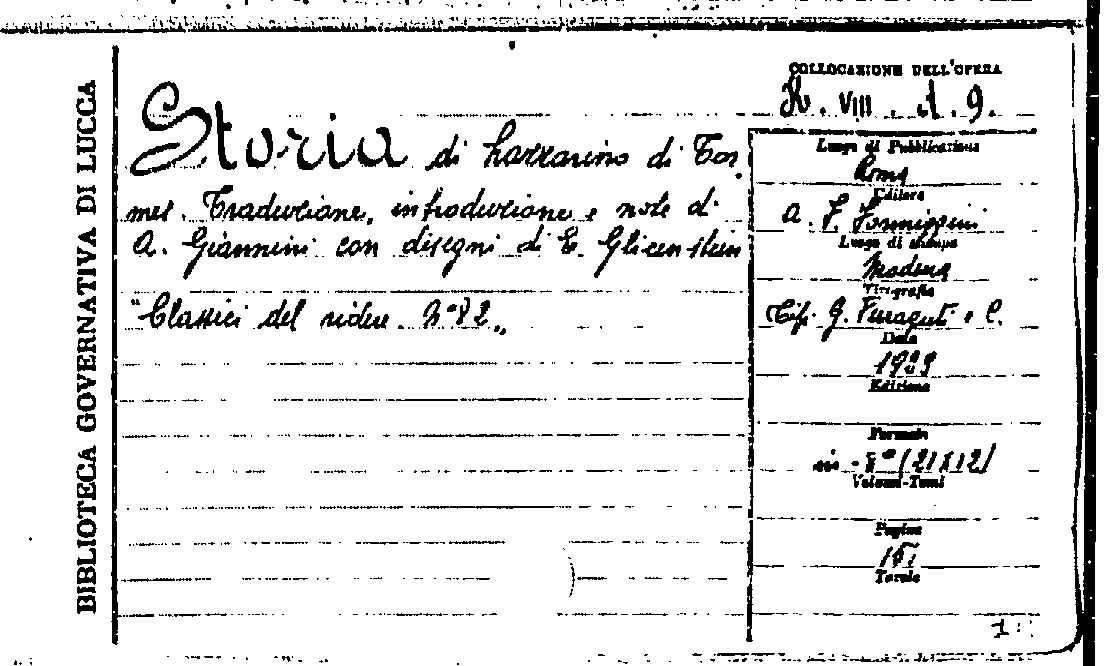 BIBLIOTECA GOVERNATIVA DI LUCCA
Storia di Lazzarino di Tor
mes. Traduzione, introduzione e note di
A. Giannini con disegni di E. Glicenstein
"Classici del ridere. N° 82"
COLLOCAZIONE DELL'OPERA
R. VIII. 1. 9.
Luogo di Pubblicazione
Roma
Editore
A. F. Formiggini
Luogo di stampa
Modena
Tipografia
Tip. G. Ferraguti e C.
Data
1929
Edizione
Formato
in-8° (21X12)
Volumi-Tomi
Pagine
Tavole
1